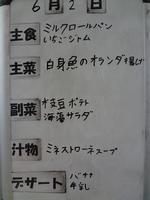 6月2日
主食 ミルクロールパン
いちごジャム
主菜 白身魚のオランダ揚げ
副菜 枝豆ポテト
海藻サラダ
汁物 ミネストローネスープ
デザート バナナ
牛乳